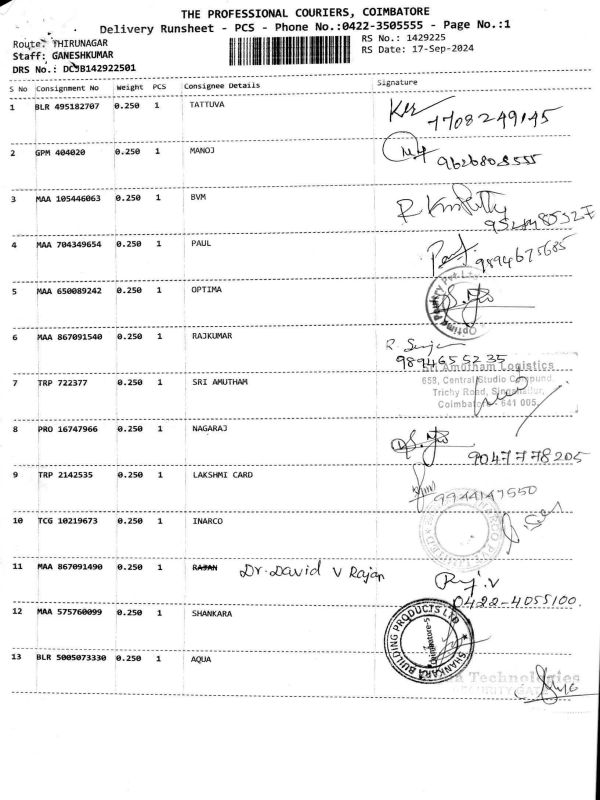 THE PROFESSIONAL COURIERS, COIMBATORE
Delivery Runsheet - PCS - Phone No.:0422-3505555 - Page No.:1
Route: THIRUNAGAR
RS No.: 1429225
Staff: GANESHKUMAR
RS Date: 17-Sep-2024
DRS No.: DCJB142922501
S No Consignment No Weight PCS Consignee Details Signature
1 BLR 495182707 0.250 1 TATTUVA
7708249145
2 GPM 404020 0.250 1 MANOJ
9626808555
3 MAA 105446063 0.250 1 BVM
4 MAA 704349654 0.250 1 PAUL
9894675685
5 MAA 650089242 0.250 1 OPTIMA
6 MAA 867091540 0.250 1 RAJKUMAR
9894655235
7 TRP 722377 0.250 1 SRI AMUTHAM
Amutham Logistics
658, Central Studio Compound
Trichy Road, Singanallur,
Coimbatore - 641 005.
8 PRO 16747966 0.250 1 NAGARAJ
9047778205
9 TRP 2142535 0.250 1 LAKSHMI CARD
9944147550
10 TCG 10219673 0.250 1 INARCO
11 MAA 867091490 0.250 1 RAJAN Dr. David V Rajan
0422-4055100.
12 MAA 575760099 0.250 1 SHANKARA
SHANKARA BUILDING PRODUCTS LTD
Coimbatore-5
13 BLR 5005073330 0.250 1 AQUA
Technologies